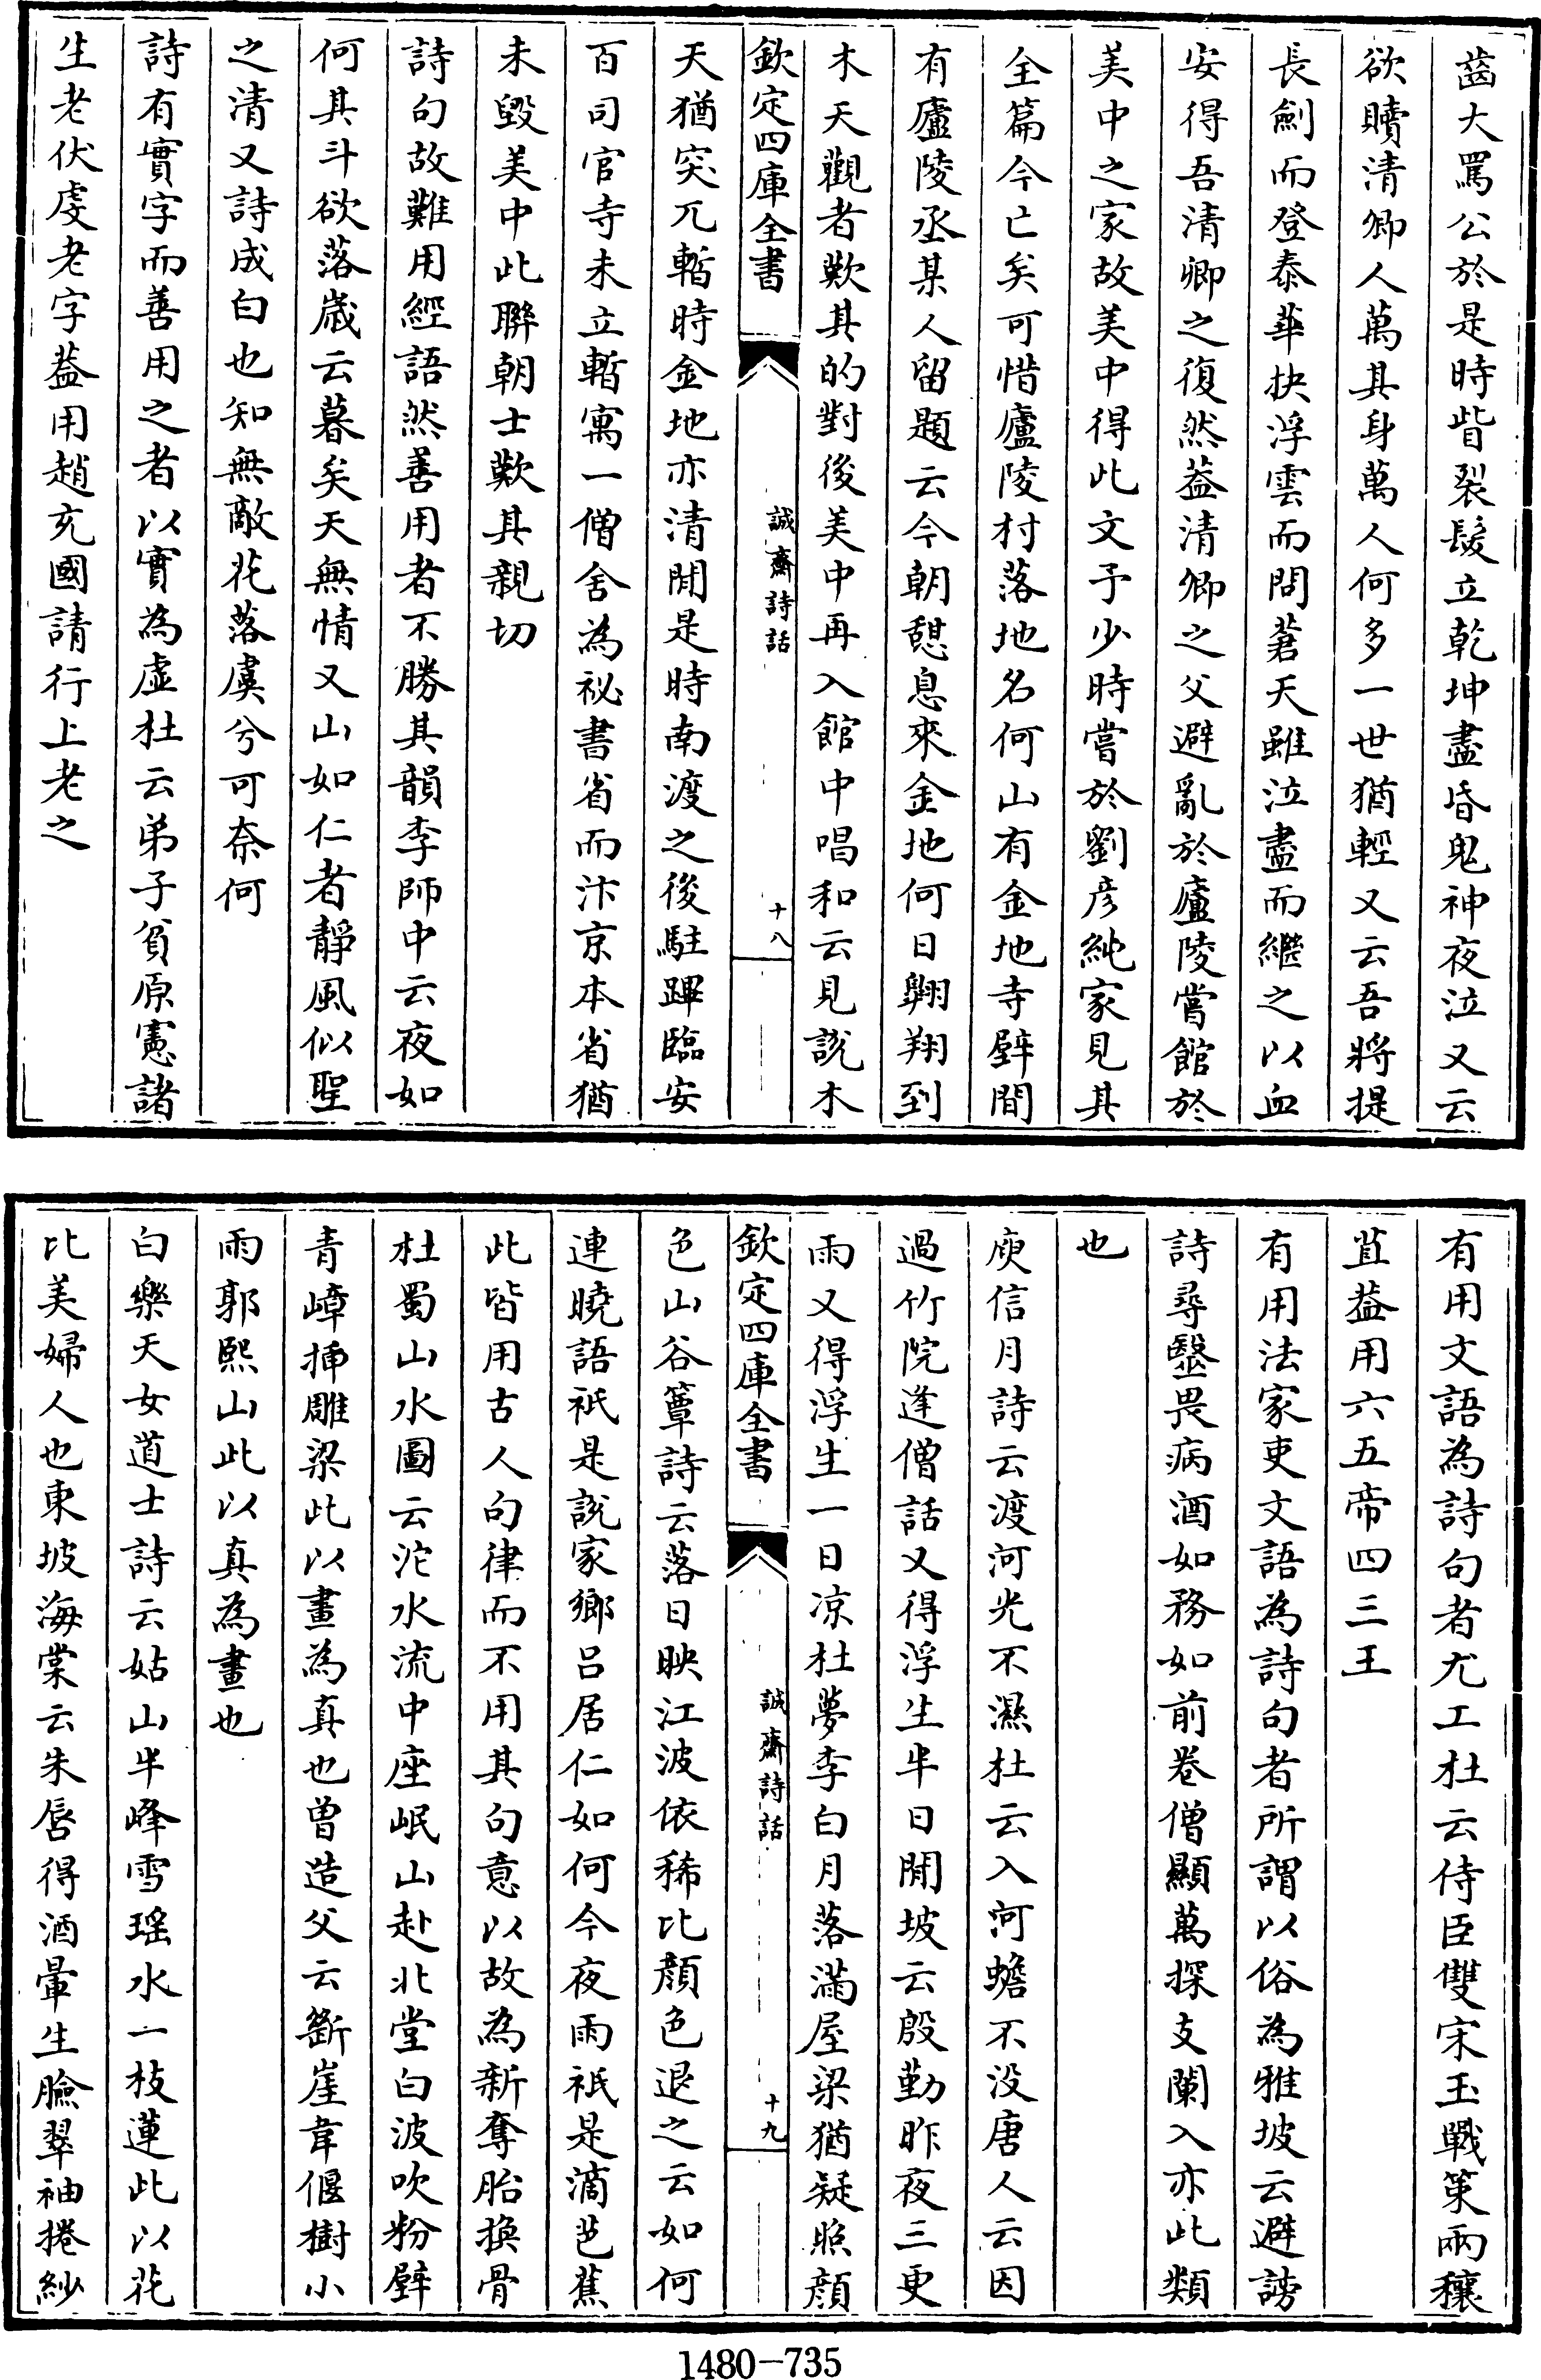 齒大罵公於是時眥裂髮立乾坤盡昏鬼神夜泣又云
欲贖清卿人萬其身萬人何多一世猶輕又云吾將提
長劍而登泰華抉浮雲而問蒼天雖泣盡而繼之以血
安得吾清卿之復然葢清卿之父避亂於廬陵嘗館於
美中之家故美中得此文予少時嘗於劉彥純家見其
全篇今亡矣可惜廬陵村落地名何山有金地寺壁間
有廬陵丞某人留題云今朝憇息來金地何日翺翔到
木天觀者歎其的對後美中再入館中唱和云見說木
欽定四庫全書
誠齋詩話
十八
天猶突兀暫時金地亦清閒是時南渡之後駐蹕臨安
百司官寺未立暫寓一僧舍為祕書省而汴京本省猶
未毀美中此聯朝士歎其親切
詩句故難用經語然善用者不勝其韻李師中云夜如
何其斗欲落歲云暮矣天無情又山如仁者靜風似聖
之清又詩成白也知無敵花落虞兮可奈何
詩有實字而善用之者以實為虛杜云弟子貧原憲諸
生老伏虔老字葢用趙充國請行上老之
有用文語為詩句者尤工杜云侍臣雙宋玉戰策兩穰
苴葢用六五帝四三王
有用法家吏文語為詩句者所謂以俗為雅坡云避謗
詩尋醫畏病酒如務如前卷僧顯萬探支闌入亦此類
也
庾信月詩云渡河光不濕杜云入河蟾不没唐人云因
過竹院逢僧話又得浮生半日閒坡云殷勤昨夜三更
雨又得浮生一日凉杜夢李白月落滿屋梁猶疑照顔
欽定四庫全書
誠齋詩話
十九
色山谷簟詩云落日映江波依稀比顔色退之云如何
連曉語祇是說家鄉吕居仁如何今夜雨祇是滴芭蕉
此皆用古人句律而不用其句意以故為新奪胎換骨
杜蜀山水圖云沱水流中座岷山赴北堂白波吹粉壁
青嶂揷雕梁此以畫為真也曾造父云斷崖韋偃樹小
雨郭熙山此以真為畫也
白樂天女道士詩云姑山半峰雪瑶水一枝蓮此以花
比美婦人也東坡海棠云朱唇得酒暈生臉翠袖捲紗
1480-735